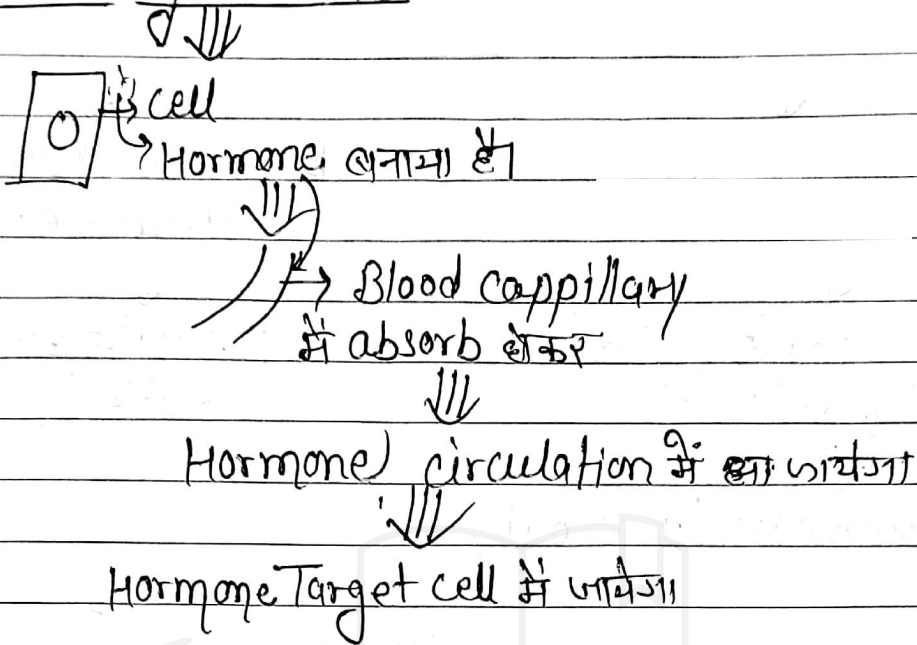 → cell
→ Hormone बनाया है।
→ Blood cappillary
में absorb होकर
Hormone circulation में आ जायेगा
Hormone Target cell में जायेगा